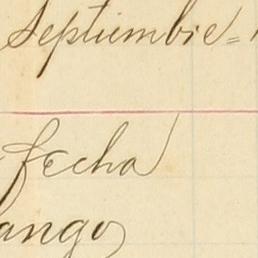 Septiembre=
fecha
ango